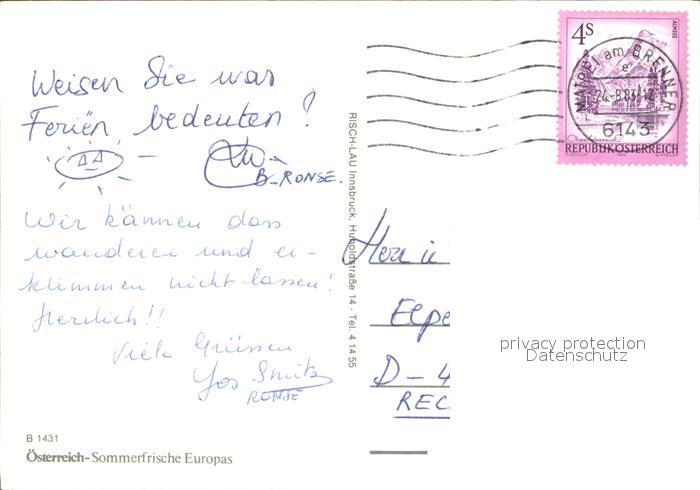 Weisen Sie was
Feriën bedeuten?
B_RONSE.
Wir kännen dass
wanderen und er-
klimmen nicht lassen!
Herrlich!!
Viele Grüssen
Jos
RONSE
B 1431
Österreich-Sommerfrische Europas
RISCH-LAU Innsbruck, Huboldstraße 14 - Tel. 4 14 55
4S
ALMSEE
MATREI am BRENNER
24.-8.83-17
6143
REPUBLIK ÖSTERREICH
Elpe
D-4
REC
privacy protection
Datenschutz